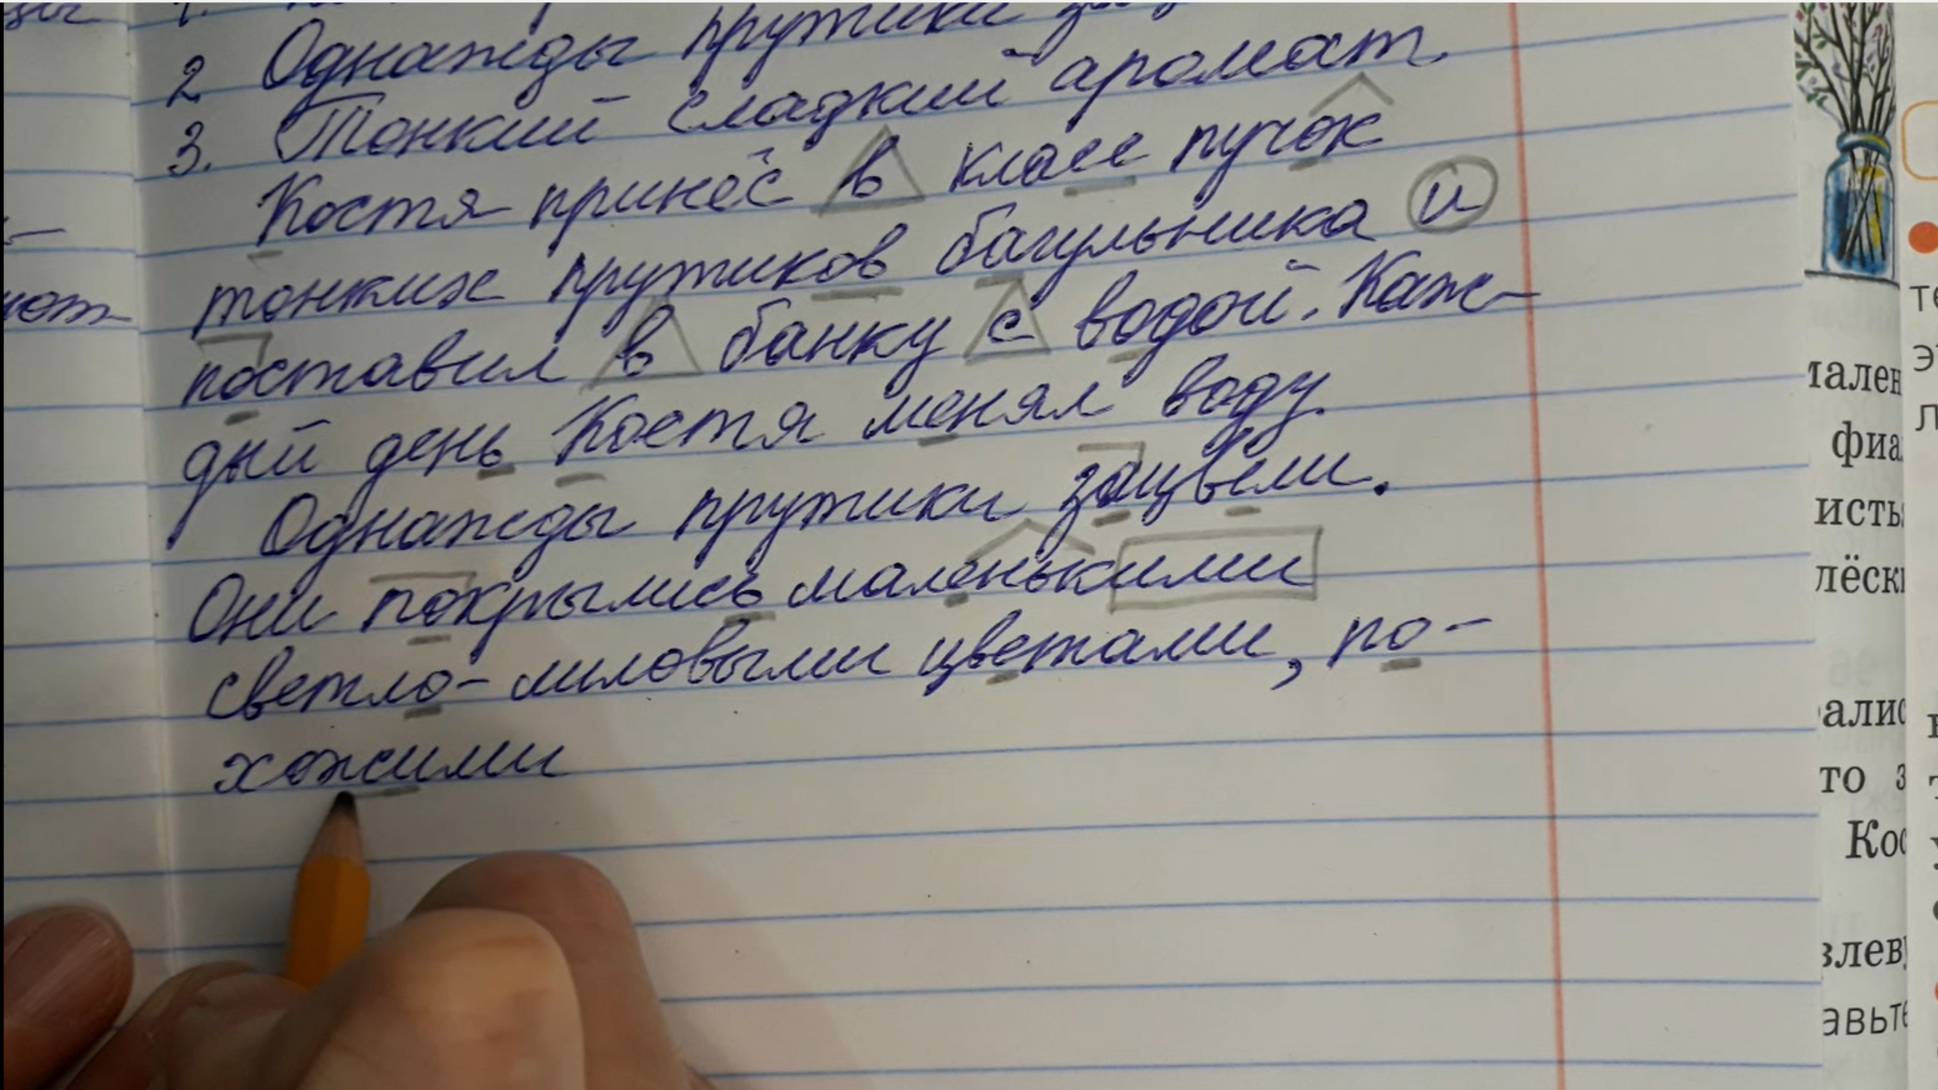 2 Однажды прутики
3. Тонкий сладкий аромат.
Костя принёс в класс пучок
тонких прутиков багульника и
поставил в банку с водой. Каж-
дый день Костя менял воду.
Однажды прутики зацвели.
Они покрылись маленькими
светло-лиловыми цветами, по-
хожими
мален
фиа
исть
лёск
алис
то з
Кос
влев
авьте